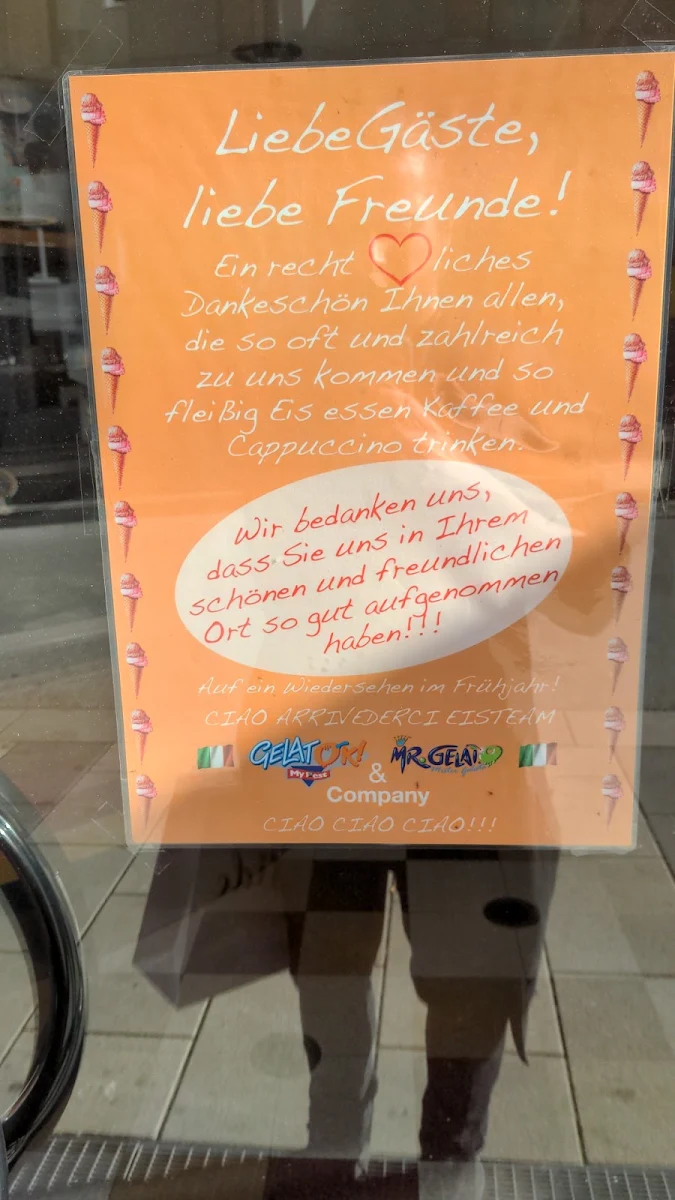 Liebe Gäste,
liebe Freunde!
Ein recht ❤liches
Dankeschön Ihnen allen,
die so oft und zahlreich
zu uns kommen und so
fleißig Eis essen Kaffee und
Cappuccino trinken.
Wir bedanken uns,
dass Sie uns in Ihrem
schönen und freundlichen
Ort so gut aufgenommen
haben!!!
Auf ein Wiedersehen im Frühjahr!
CIAO ARRIVEDERCI EISTEAM
GELATOK! MR. GELATO
My Best
&
Company
CIAO CIAO CIAO!!!